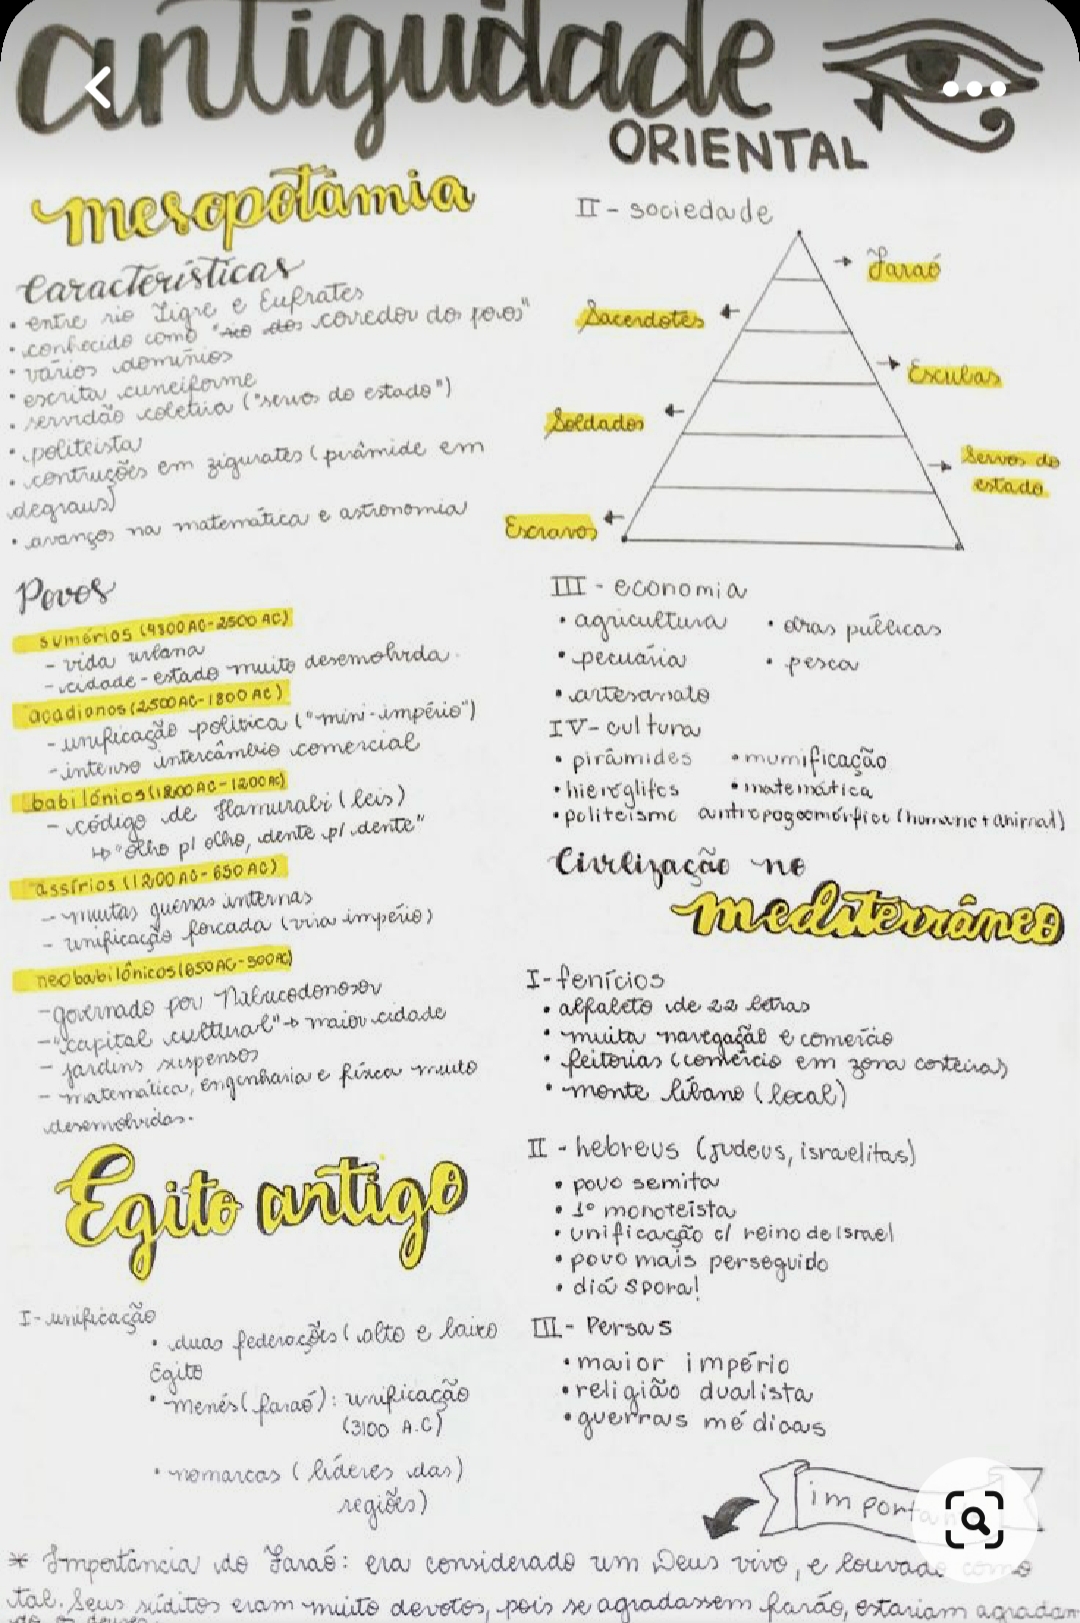 antiguidade
ORIENTAL
mesopotâmia
Características
• entre rio Tigre e Eufrates
• conhecido como "rio dos corredor do povos"
• vários domínios
• escrita cuneiforme
• servidão coletiva ("servos do estado")
• politeísta
• contruções em zigurates (pirâmide em
degraus)
• avanços na matemática e astronomia
Povos
sumérios (4300 AC-2500 AC)
- vida urbana
- cidade-estado muito desenvolvida.
acadianos (2500 AC-1800 AC)
- unificação política ("mini-império")
- intenso intercâmbio comercial
babilônios (1800 AC-1200 AC)
- código de Hamurabi (leis)
↳ "olho p/ olho, dente p/ dente"
assírios (1200 AC-650 AC)
- muitas guerras internas
- unificação forçada (vira império)
neobabilônicos (650 AC-500 AC)
- governado por Nabucodonosor
- "capital cultural" → maior cidade
- jardins suspensos
- matemática, engenharia e física muito
desenvolvidas.
Egito antigo
I - unificação
• duas federações (alto e baixo
Egito
• menés (faraó): unificação
(3100 A.C)
• nomarcas (líderes das)
regiões)
II - sociedade
→ Faraó
Sacerdotes ←
→ Escribas
Soldados ←
→ Servos do
estado
Escravos ←
III - economia
• agricultura • obras públicas
• pecuária • pesca
• artesanato
IV - cultura
• pirâmides • mumificação
• hieróglifos • matemática
• politeísmo antropogoomórfico (humano + animal)
Civilização no
mediterrâneo
I - fenícios
• alfabeto de 22 letras
• muita navegação e comércio
• feitorias (comércio em zona costeiras)
• monte líbano (local)
II - hebreus (judeus, israelitas)
• povo semita
• 1º monoteísta
• unificação c/ reino de Israel
• povo mais perseguido
• diáspora!
III - Persas
• maior império
• religião dualista
• guerras médicas
importan
* Importância do Faraó: era considerado um Deus vivo, e louvado como
tal. Seus súditos eram muito devotos, pois se agradassem faraó, estariam agradam